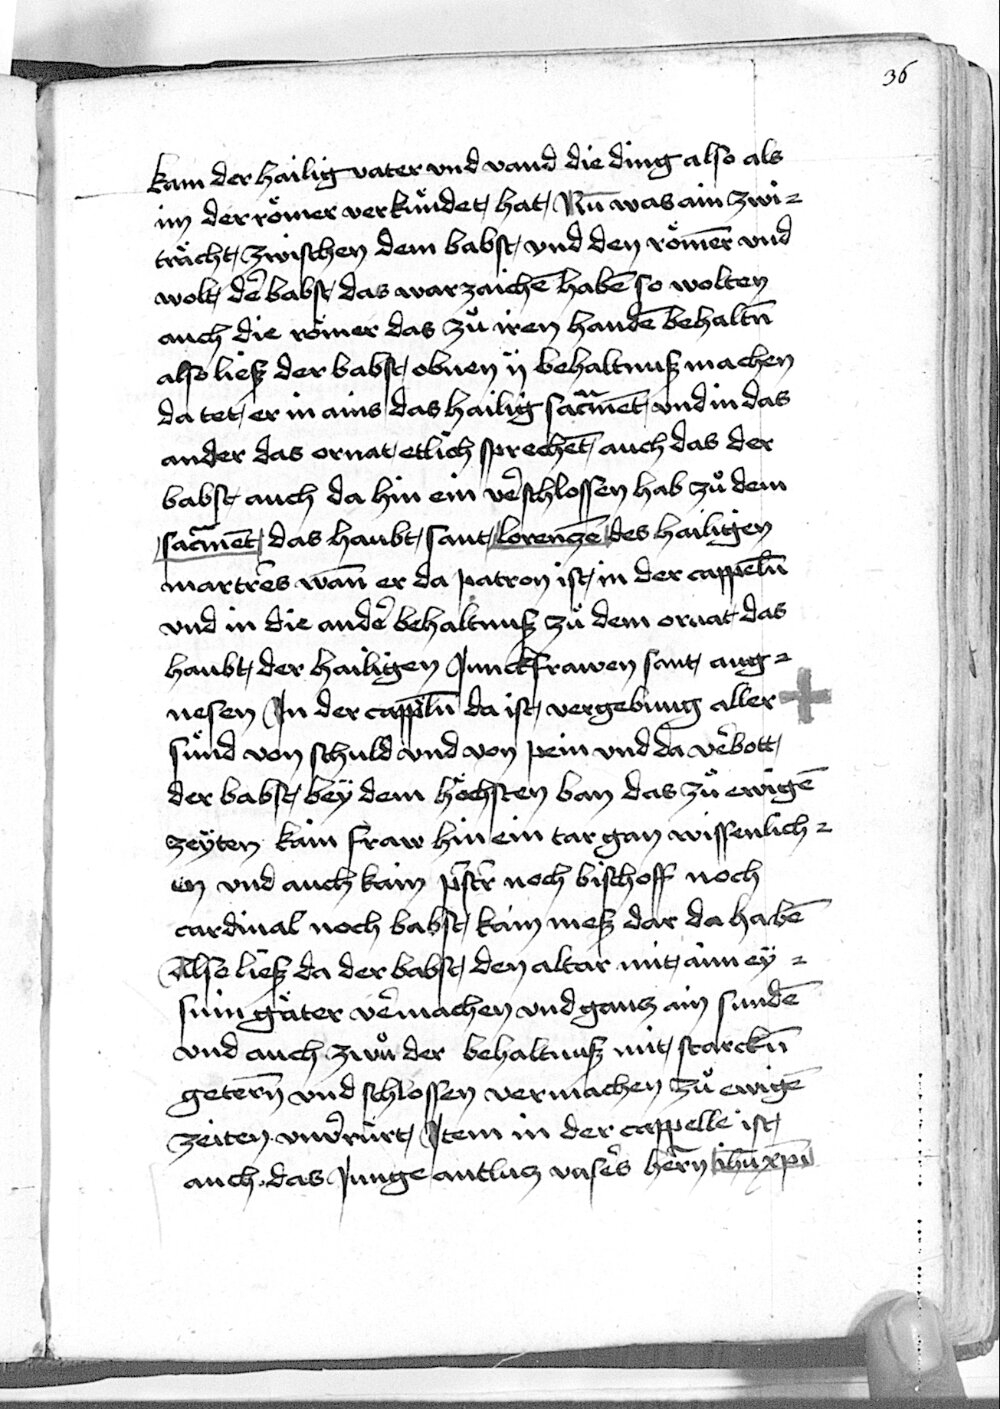 36
kam der hailig vater vnd vand die ding also als
im der römer verkündet hat Nu̅ was ain zwi=
trächt zwischen dem babst vnd den röme̅r vnd
wolt de̅r babst das warzaiche̅ habe̅ so wolten
auch die römer das zů iren hande̅ behalt̅n
also liesz der babst obnen ij behaltnusz machen
da tet er in ains das hailig sacrame̅t vnd in das
ander das ornat etlich spreche̅t auch das der
babst auch da hin ein ve̅rschlossen hab zů dem
sacrame̅t das haubt sant lorencze̅ des hailigen
martre̅rs wan̅ er da patron ist in der cappel̅n
vnd in die ande̅r behaltnusz zů dem ornat das
haubt der hailigen Junckfrawen sant ang=
nesen In der cappel̅n da ist vergebung aller
sünd von schuld vnd von pein vnd da ve̅rbott
der babst bey dem höchsten ban das zů ewige̅
zeÿten kain fraw hin ein tar gan wissenlich=
en vnd auch kain p̅ster noch bischoff noch
cardinal noch babst kain mesz dar da habe̅
Also liesz da der babst den altar mit ainn eÿ=
snin gäter ve̅rmachen vnd gancz ain sunde̅
vnd auch zwů der behaltnusz mit starck̅n
geter̅n vnd schlossen vermachen zů ewige̅
zeiten vnve̅rrürt Item in der cappelle ist
auch das Junge antlucz vnse̅rs her̅rn ihu̅ xp̅i